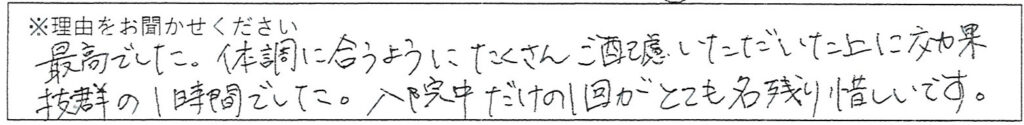 ※理由をお聞かせください
最高でした。体調に合うようにたくさんご配慮いただいた上に効果
抜群の1時間でした。入院中だけの1回がとても名残り惜しいです。